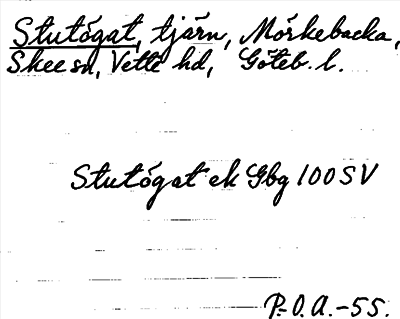 Stutögat, tjärn, Mörkebacka,
Skee sn, Vette hd, Göteb. l.
Stutögat ek Gbg 100 SV
P.O.A.-55.